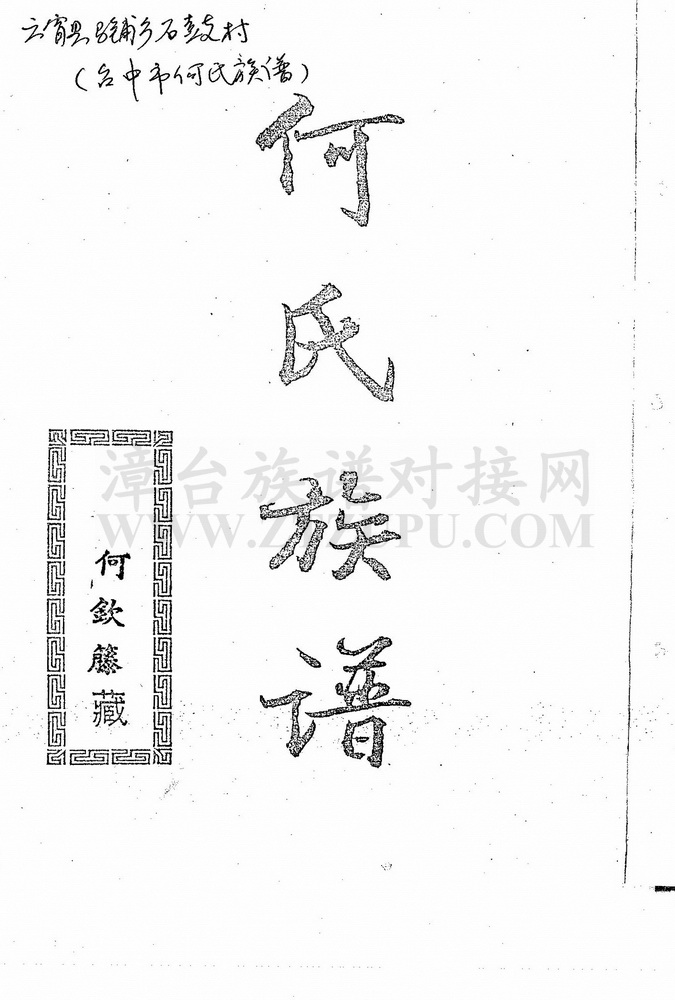 云霄县马铺乡石鼓村
(台中市何氏族谱)
何氏族谱
漳台族谱对接网
何欽籐藏